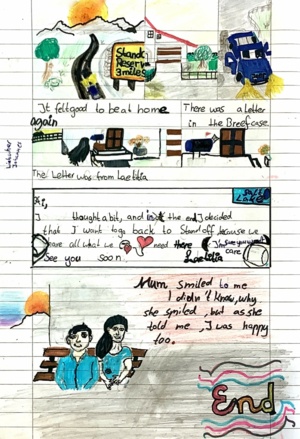 Standc
Reserv
3 miles
It felt good to be at home
again
There was a letter
in the Breefcase.
The Letter was from Laetitia
Hi,
I thought a bit, and in the end I decided
that I want to go back to Standoff, because we
care all what we need there
care
See you soon. Laetitia
Mum smiled to me
I didn't know, why
she smiled, but as she
told me, I was happy
too.
End